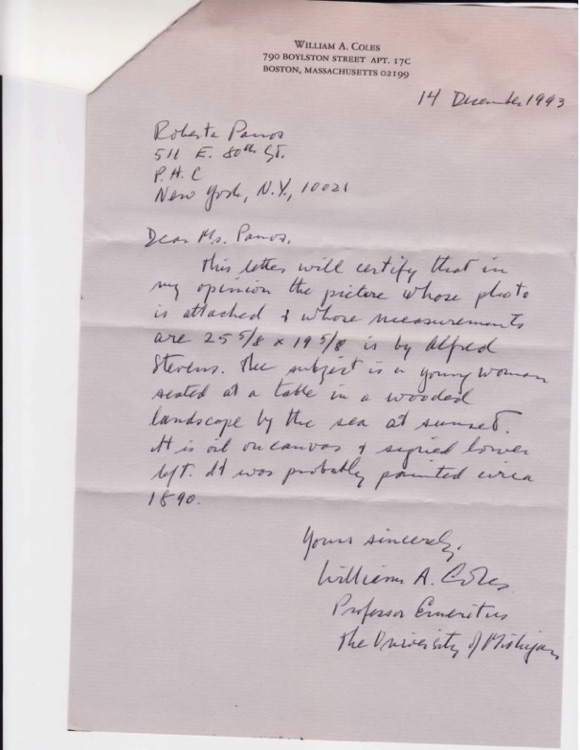 WILLIAM A. COLES
790 BOYLSTON STREET APT. 17C
BOSTON, MASSACHUSETTS 02199
14 December 1993
Roberta Panos
511 E. 80th St.
P.H.C
New York, N.Y., 10021
Dear Ms. Panos,
This letter will certify that in
my opinion the picture whose photo
is attached & whose measurements
are 25 5/8 x 19 5/8 is by Alfred
Stevens. The subject is a young woman
seated at a table in a wooded
landscape by the sea at sunset.
It is oil on canvas & signed lower
left. It was probably painted circa
1890.
Yours sincerely,
William A. Coles
Professor Emeritus
The University of Michigan